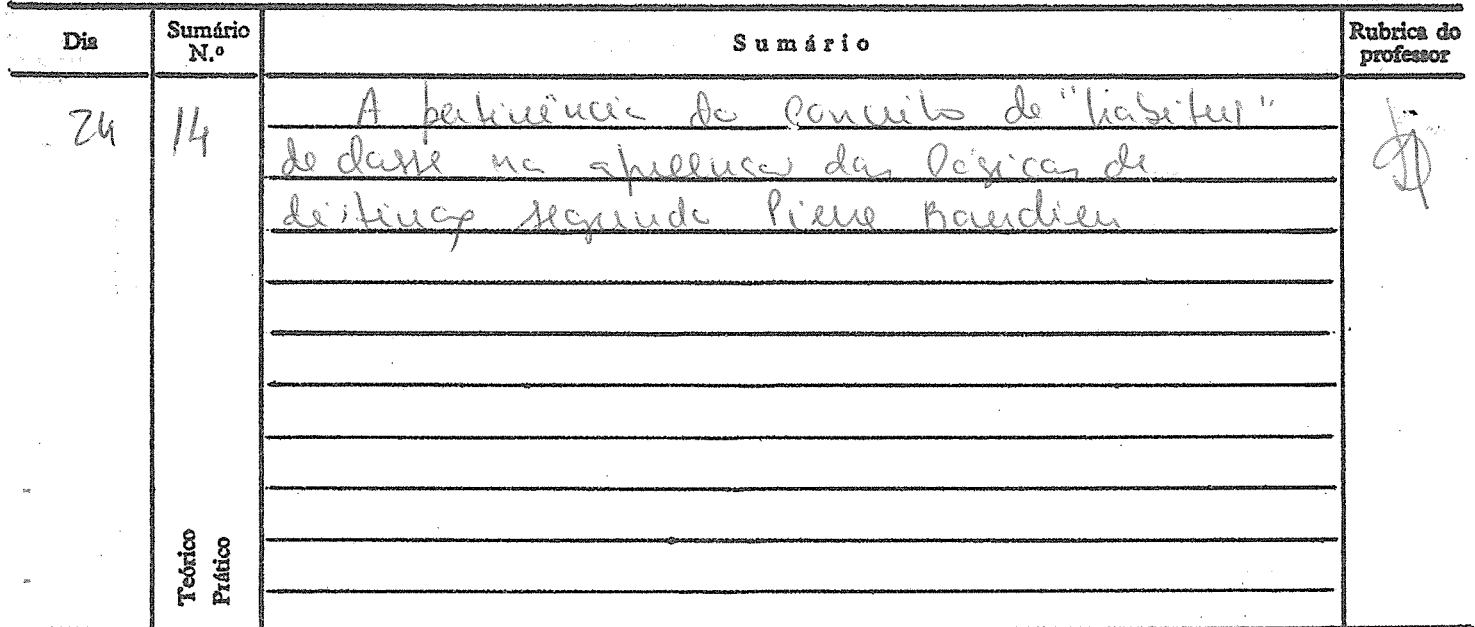 Dia Sumário N.º Sumário Rubrica do professor
24 14 A pertinência do conceito de "habitus"
de classe na apreensão das lógicas de
distinção segundo Pierre Bourdieu
Teórico
Prático